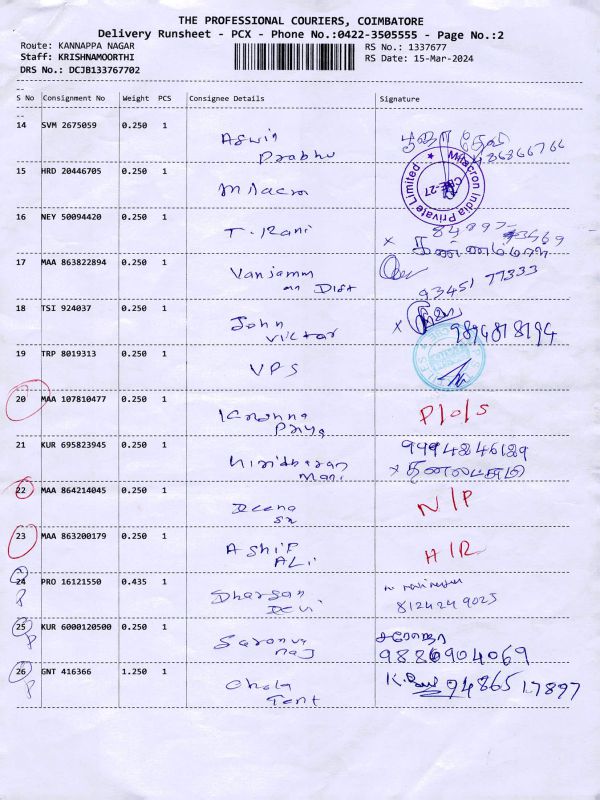 THE PROFESSIONAL COURIERS, COIMBATORE
Delivery Runsheet - PCX - Phone No.:0422-3505555 - Page No.:2
Route: KANNAPPA NAGAR
RS No.: 1337677
Staff: KRISHNAMOORTHI
RS Date: 15-Mar-2024
DRS No.: DCJB133767702
S No Consignment No Weight PCS Consignee Details Signature
14 SVM 2675059 0.250 1
Aswin
Prabhu
15 HRD 20446705 0.250 1
Milacron India Private Limited
CBE-27
Milacro
16 NEY 50094420 0.250 1
T. Rani
17 MAA 863822894 0.250 1
Vanjamm
an Dist
93451 77333
18 TSI 924037 0.250 1
John
Victar
x 9894818194
19 TRP 8019313 0.250 1
VPS
20 MAA 107810477 0.250 1
Krishna
Priya
P/o/S
21 KUR 695823945 0.250 1
9994846189
Mani
22 MAA 864214045 0.250 1
Deena
N/P
23 MAA 863200179 0.250 1
Ashif
ALi
H/R
24 PRO 16121550 0.435 1
P
Dharsan
Devi
8124249025
25 KUR 6000120500 0.250 1
P
Saronya
Raj
சரோஜா
9886904069
26 GNT 416366 1.250 1
P
Chola
Tent
94865 17897